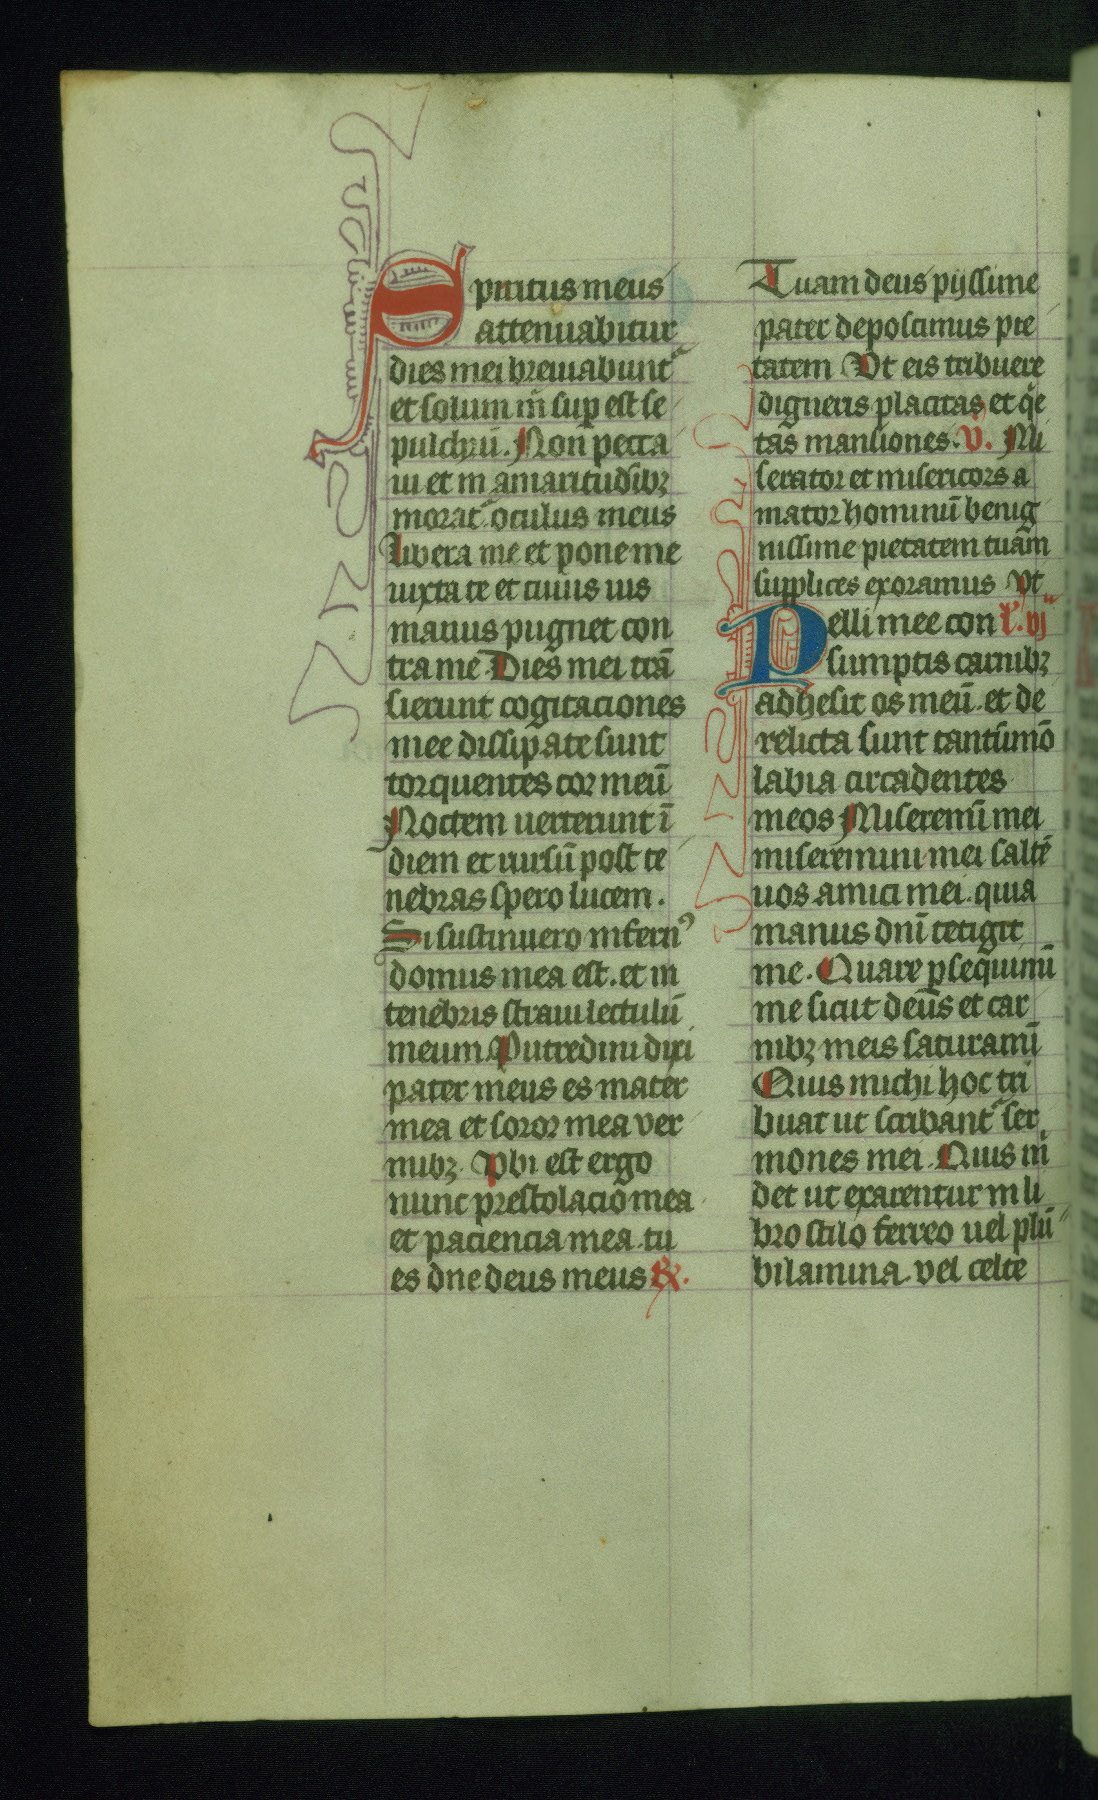 Spiritus meus
attenuabitur
dies mei breuiabunt᷑
et solum m̄ sup est se
pulchrū. Non pecca
ui et in amaritudibꝫ
morat᷑ oculus meus
Libera me et pone me
iuxta te et cuius uis
manus pugnet con
tra me Dies mei trā
sierunt cogitaciones
mee dissipate sunt
torquentes cor meū
Noctem uerterunt ī
diem et rursū post te
nebras spero lucem.
Si sustinuero infernꝰ
domus mea est. et in
tenebris straui lectulū
meum Putredini dixi
pater meus es mater
mea et soror mea ver
mibꝫ. Vbi est ergo
nunc prestolacio mea
et paciencia mea. tu
es dne deus meus ℟.
Tuam deus pijssime
pater deposcimus pie
tatem Vt eis tribuere
digneris placitas et qͥe
tas mansiones. ℣. Mi
serator et misericors a
mator hominū benig
nissime pietatem tuam
supplices exoramus Vt
Pelli mee con l'. vij
sumptis carnibꝫ
adhesit os meū. et de
relicta sunt tantūmō
labia circa dentes
meos Miseremī mei
miseremini mei saltē
uos amici mei. quia
manus dnī tetigit
me. Quare ꝑsequimī
me sicut deus et car
nibꝫ meis saturamī
Quis michi hoc tri
buat ut scribant᷑ ser
mones mei. Quis m̄
det ut exarentur in li
bro stilo ferreo uel plū
bi lamina. vel celte